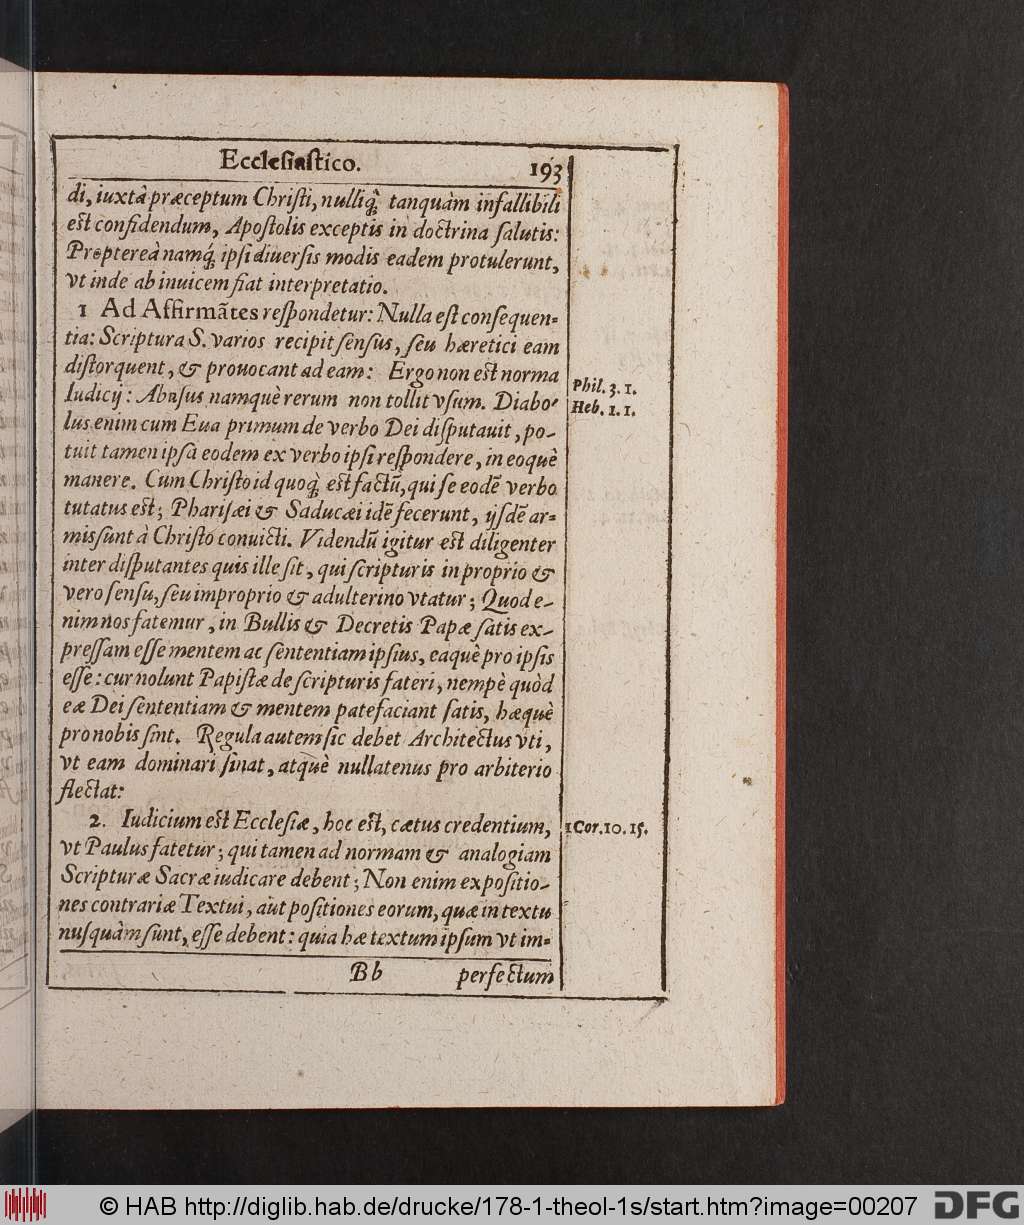 Ecclesiastico. 193
di, iuxtà præceptum Christi, nulliq́; tanquàm infallibili
est confidendum, Apostolis exceptis in doctrina salutis:
Proptereà namq́; ipsi diuersis modis eadem protulerunt,
vt inde ab inuicem fiat interpretatio.
1 Ad Affirmātes respondetur: Nulla est consequen=
tia: Scriptura S. varios recipit sensus, seu hæretici eam
distorquent, & prouocant ad eam: Ergo non est norma
Phil. 3. 1.
Iudicij: Abusus namquè rerum non tollit vsum. Diabo-
Heb. 1. 1.
lus enim cum Eua primum de verbo Dei disputauit, po-
tuit tamen ipsà eodem ex verbo ipsi respondere, in eoquè
manere. Cum Christo id quoq́; est factū, qui se eodē verbo
tutatus est; Pharisæi & Saducæi idē fecerunt, ijsdē ar=
mis sunt à Christo conuicti. Videndū igitur est diligenter
inter disputantes quis ille sit, qui scripturis in proprio &
vero sensu, seu improprio & adulterino vtatur; Quod e-
nim nos fatemur, in Bullis & Decretis Papæ satis ex-
pressam esse mentem ac sententiam ipsius, eaquè pro ipsis
esse: cur nolunt Papistæ de scripturis fateri, nempè quòd
eæ Dei sententiam & mentem patefaciant satis, hæquè
pro nobis sint. Regula autem sic debet Architectus vti,
vt eam dominari sinat, atquè nullatenus pro arbiterio
flectat:
2. Iudicium est Ecclesiæ, hoc est, cætus credentium,
1 Cor. 10. 15.
vt Paulus fatetur; qui tamen ad normam & analogiam
Scripturæ Sacræ iudicare debent; Non enim expositio-
nes contrariæ Textui, aut positiones eorum, quæ in textu
nusquàm sunt, esse debent: quia hæ textum ipsum vt im=
Bb perfectum
© HAB http://diglib.hab.de/drucke/178-1-theol-1s/start.htm?image=00207 DFG